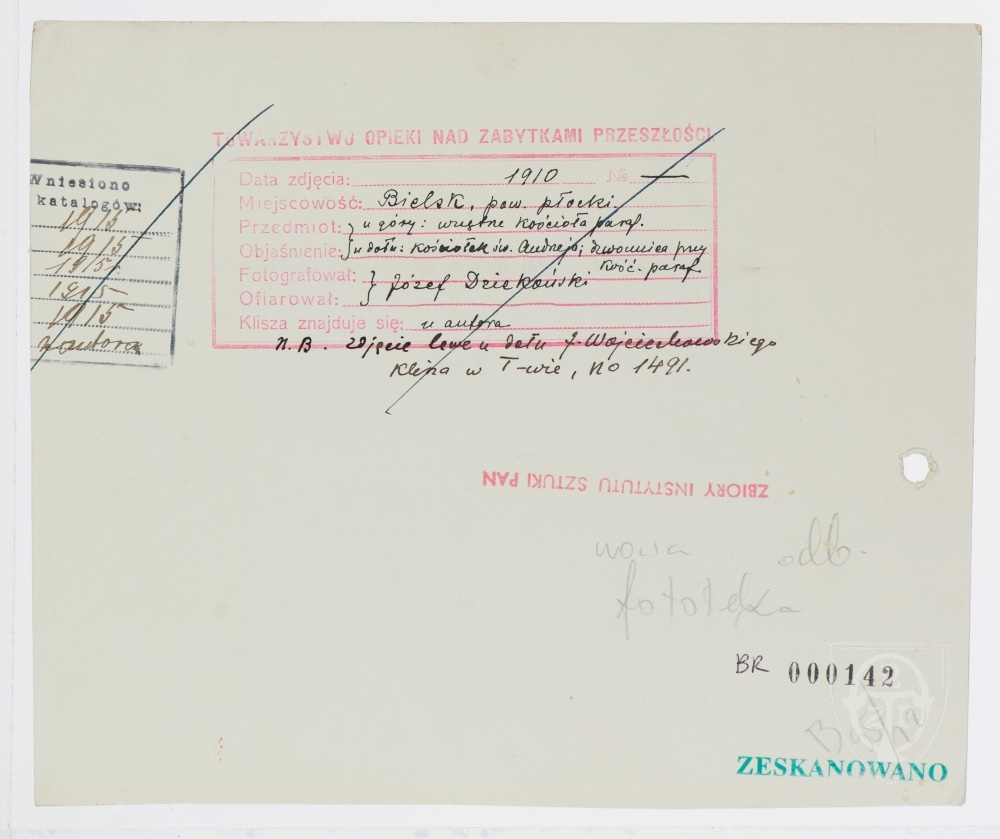 TOWARZYSTWO OPIEKI NAD ZABYTKAMI PRZESZŁOŚCI
Data zdjęcia: 1910 № —
Miejscowość: Bielsk, pow. płocki.
Przedmiot: u góry: wnętrze kościoła paraf.
Objaśnienie: u dołu: kościołek św. Andrzeja; dzwonnica przy
kość. paraf.
Fotografował: Józef Dziekoński
Ofiarował:
Klisza znajduje się: u autora
N.B. zdjęcie lewe u dołu J. Wojciechowskiego
Klisza w T-wie, no 1491.
Wniesiono
katalogów:
1915
1915
1915
1915
1915
u autora
ZBIORY INSTYTUTU SZTUKI PAN
nowa odb.
fototeka
BR 000142
ZESKANOWANO